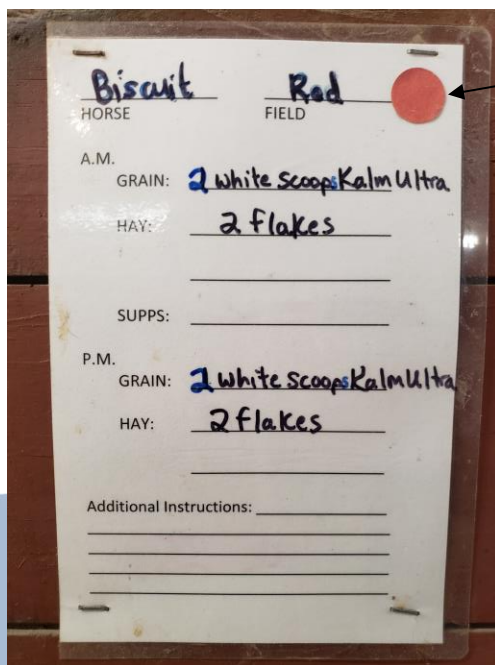 Biscuit Red
HORSE FIELD
A.M.
GRAIN: 2 white scoops Kalm Ultra
HAY: 2 flakes
SUPPS:
P.M.
GRAIN: 2 white scoops Kalm Ultra
HAY: 2 flakes
Additional Instructions: